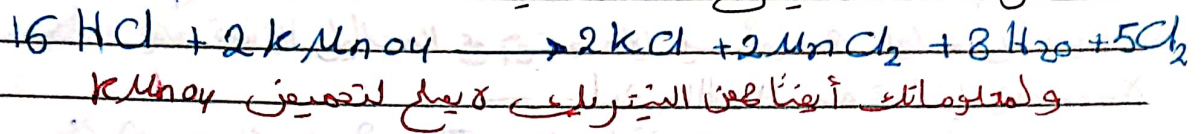 16 HCl + 2 KMnO4 → 2KCl + 2MnCl2 + 8H2O + 5Cl2
ولمعلوماتك أيضًا حمض النيتريك لا يصلح لتحميض KMnO4